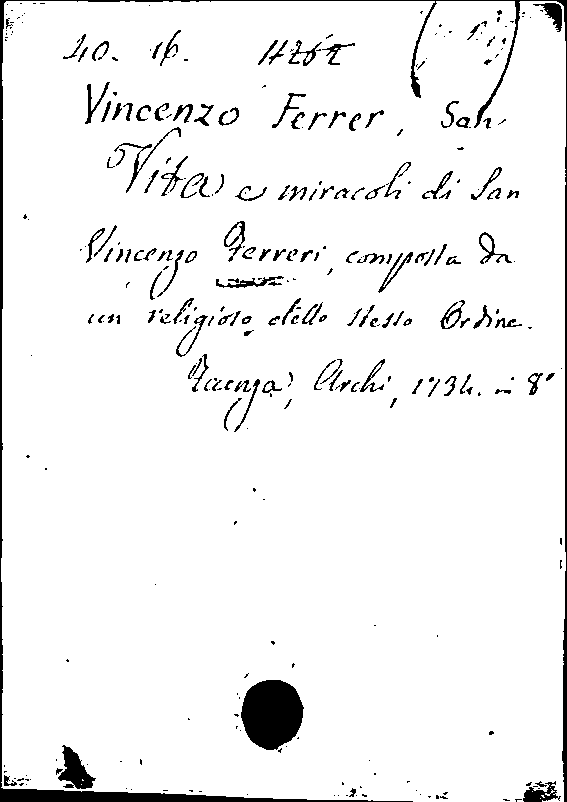 40. 16.
Vincenzo Ferrer, San
Vita e miracoli di San
Vincenzo Ferreri, composta da
un religioso dello stesso Ordine.
Faenza, Archi, 1734. in 8°